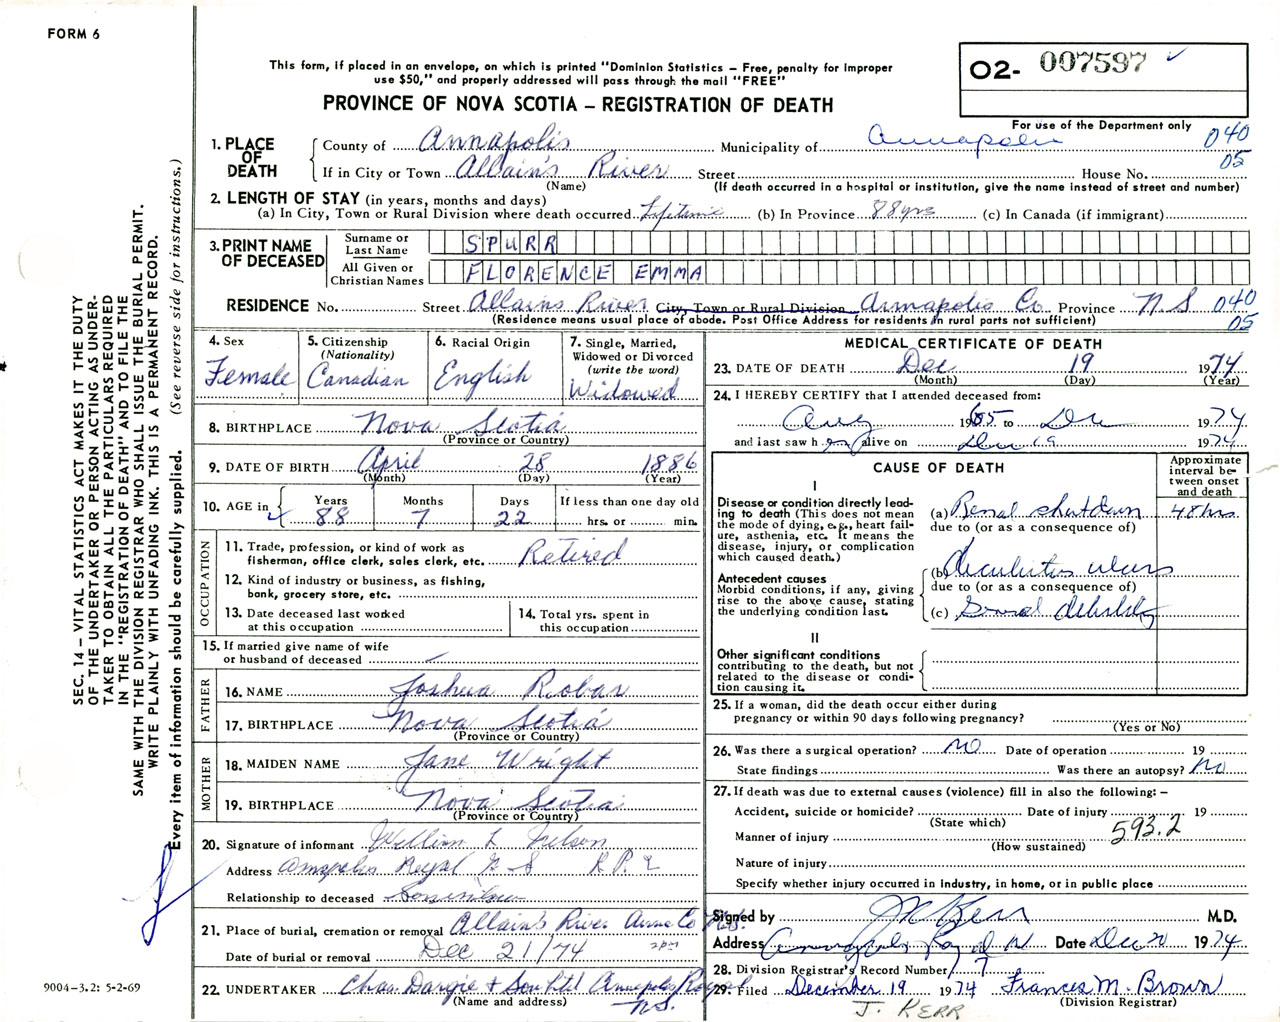 FORM 6
This form, if placed in an envelope, on which is printed "Dominion Statistics – Free, penalty for improper
use $50," and properly addressed will pass through the mail "FREE"
PROVINCE OF NOVA SCOTIA – REGISTRATION OF DEATH
O2- 007597
For use of the Department only
1. PLACE OF DEATH
County of Annapolis Municipality of Annapolis 040
If in City or Town Allain's River Street House No. 05
(Name) (If death occurred in a hospital or institution, give the name instead of street and number)
2. LENGTH OF STAY (in years, months and days)
(a) In City, Town or Rural Division where death occurred Lifetime (b) In Province 88 yrs (c) In Canada (if immigrant)
3. PRINT NAME OF DECEASED
Surname or Last Name SPURR
All Given or Christian Names FLORENCE EMMA
RESIDENCE No. Street Allains River City, Town or Rural Division Annapolis Co Province N S 040
(Residence means usual place of abode. Post Office Address for residents in rural parts not sufficient) 05
4. Sex Female
5. Citizenship (Nationality) Canadian
6. Racial Origin English
7. Single, Married, Widowed or Divorced (write the word) Widowed
8. BIRTHPLACE Nova Scotia
(Province or Country)
9. DATE OF BIRTH April 28 1886
(Month) (Day) (Year)
10. AGE in Years 88 Months 7 Days 22 If less than one day old hrs. or min.
OCCUPATION
11. Trade, profession, or kind of work as
fisherman, office clerk, sales clerk, etc. Retired
12. Kind of industry or business, as fishing,
bank, grocery store, etc.
13. Date deceased last worked
at this occupation
14. Total yrs. spent in
this occupation
15. If married give name of wife
or husband of deceased
FATHER
16. NAME Joshua Robar
17. BIRTHPLACE Nova Scotia
(Province or Country)
MOTHER
18. MAIDEN NAME Jane Wright
19. BIRTHPLACE Nova Scotia
(Province or Country)
20. Signature of informant William L
Address Annapolis Royal N S R.R. 2
Relationship to deceased Son in law
21. Place of burial, cremation or removal Allain's River Anna Co N.S.
Date of burial or removal Dec 21/74 2 pm
22. UNDERTAKER Chas. Dargie & Son Ltd Annapolis Royal
(Name and address) N.S.
MEDICAL CERTIFICATE OF DEATH
23. DATE OF DEATH Dec 19 1974
(Month) (Day) (Year)
24. I HEREBY CERTIFY that I attended deceased from:
Aug 1965 to Dec 1974
and last saw her alive on Dec 19 1974
CAUSE OF DEATH
Approximate interval between onset and death
I
Disease or condition directly lead-
ing to death (This does not mean
the mode of dying, e.g., heart fail-
ure, asthenia, etc. It means the
disease, injury, or complication
which caused death.)
(a) Renal shutdown 48 hrs
due to (or as a consequence of)
Antecedent causes
Morbid conditions, if any, giving
rise to the above cause, stating
the underlying condition last.
(b) decubitus ulcers
due to (or as a consequence of)
(c) General debility
II
Other significant conditions
contributing to the death, but not
related to the disease or condi-
tion causing it.
25. If a woman, did the death occur either during
pregnancy or within 90 days following pregnancy?
(Yes or No)
26. Was there a surgical operation? no Date of operation 19
State findings Was there an autopsy? no
27. If death was due to external causes (violence) fill in also the following: –
Accident, suicide or homicide? Date of injury 19
(State which)
Manner of injury 593.2
(How sustained)
Nature of injury
Specify whether injury occurred in industry, in home, or in public place
Signed by J Kerr M.D.
Address Annapolis Royal N Date Dec 20 1974
28. Division Registrar's Record Number 7
29. Filed December 19 1974 Frances M. Brown
(Division Registrar)
J. KERR
SEC. 14 – VITAL STATISTICS ACT MAKES IT THE DUTY
OF THE UNDERTAKER OR PERSON ACTING AS UNDER-
TAKER TO OBTAIN ALL THE PARTICULARS REQUIRED
IN THE "REGISTRATION OF DEATH" AND TO FILE THE
SAME WITH THE DIVISION REGISTRAR WHO SHALL ISSUE THE BURIAL PERMIT.
WRITE PLAINLY WITH UNFADING INK. THIS IS A PERMANENT RECORD.
Every item of information should be carefully supplied. (See reverse side for instructions.)
9004-3.2: 5-2-69